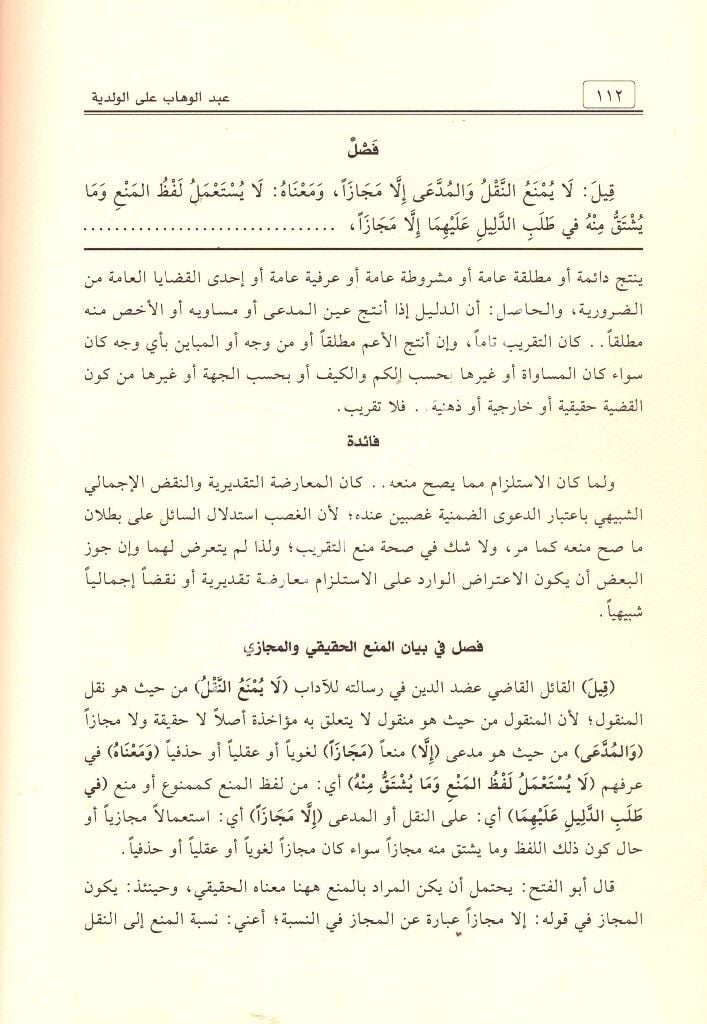 عبد الوهاب على الولدية
١١٢
فَصْلٌ
قِيلَ: لَا يُمْنَعُ النَّقْلُ وَالمُدَّعَى إِلَّا مَجَازَاً، وَمَعْنَاهُ: لَا يُسْتَعْمَلُ لَفْظُ المَنْعِ وَمَا
يُشْتَقُّ مِنْهُ في طَلَبِ الدَّلِيلِ عَلَيْهِمَا إِلَّا مَجَازَاً، ..............................
ينتج دائمة أو مطلقة عامة أو مشروطة عامة أو عرفية عامة أو إحدى القضايا العامة من
الضرورية، والحاصل: أن الدليل إذا أنتج عين المدعى أو مساويه أو الأخص منه
مطلقاً.. كان التقريب تاماً، وإن أنتج الأعم مطلقاً أو من وجه أو المباين بأي وجه كان
سواء كان المساواة أو غيرها بحسب الكم والكيف أو بحسب الجهة أو غيرها من كون
القضية حقيقية أو خارجية أو ذهنية.. فلا تقريب.
فائدة
ولما كان الاستلزام مما يصح منعه.. كان المعارضة التقديرية والنقض الإجمالي
الشبيهي باعتبار الدعوى الضمنية غصبين عنده؛ لأن الغصب استدلال السائل على بطلان
ما صح منعه كما مر، ولا شك في صحة منع التقريب؛ ولذا لم يتعرض لهما وإن جوز
البعض أن يكون الاعتراض الوارد على الاستلزام معارضة تقديرية أو نقضاً إجمالياً
شبيهياً.
فصل في بيان المنع الحقيقي والمجازي
(قِيلَ) القائل القاضي عضد الدين في رسالته للآداب (لَا يُمْنَعُ النَّقْلُ) من حيث هو نقل
المنقول؛ لأن المنقول من حيث هو منقول لا يتعلق به مؤاخذة أصلاً لا حقيقة ولا مجازاً
(وَالمُدَّعَى) من حيث هو مدعى (إِلَّا) منعاً (مَجَازَاً) لغوياً أو عقلياً أو حذفياً (وَمَعْنَاهُ) في
عرفهم (لَا يُسْتَعْمَلُ لَفْظُ المَنْعِ وَمَا يُشْتَقُّ مِنْهُ) أي: من لفظ المنع كممنوع أو منع (في
طَلَبِ الدَّلِيلِ عَلَيْهِمَا) أي: على النقل أو المدعى (إِلَّا مَجَازَاً) أي: استعمالاً مجازياً أو
حال كون ذلك اللفظ وما يشتق منه مجازاً سواء كان مجازاً لغوياً أو عقلياً أو حذفياً.
قال أبو الفتح: يحتمل أن يكن المراد بالمنع ههنا معناه الحقيقي، وحينئذ: يكون
المجاز في قوله: إلا مجازاً عبارة عن المجاز في النسبة؛ أعني: نسبة المنع إلى النقل